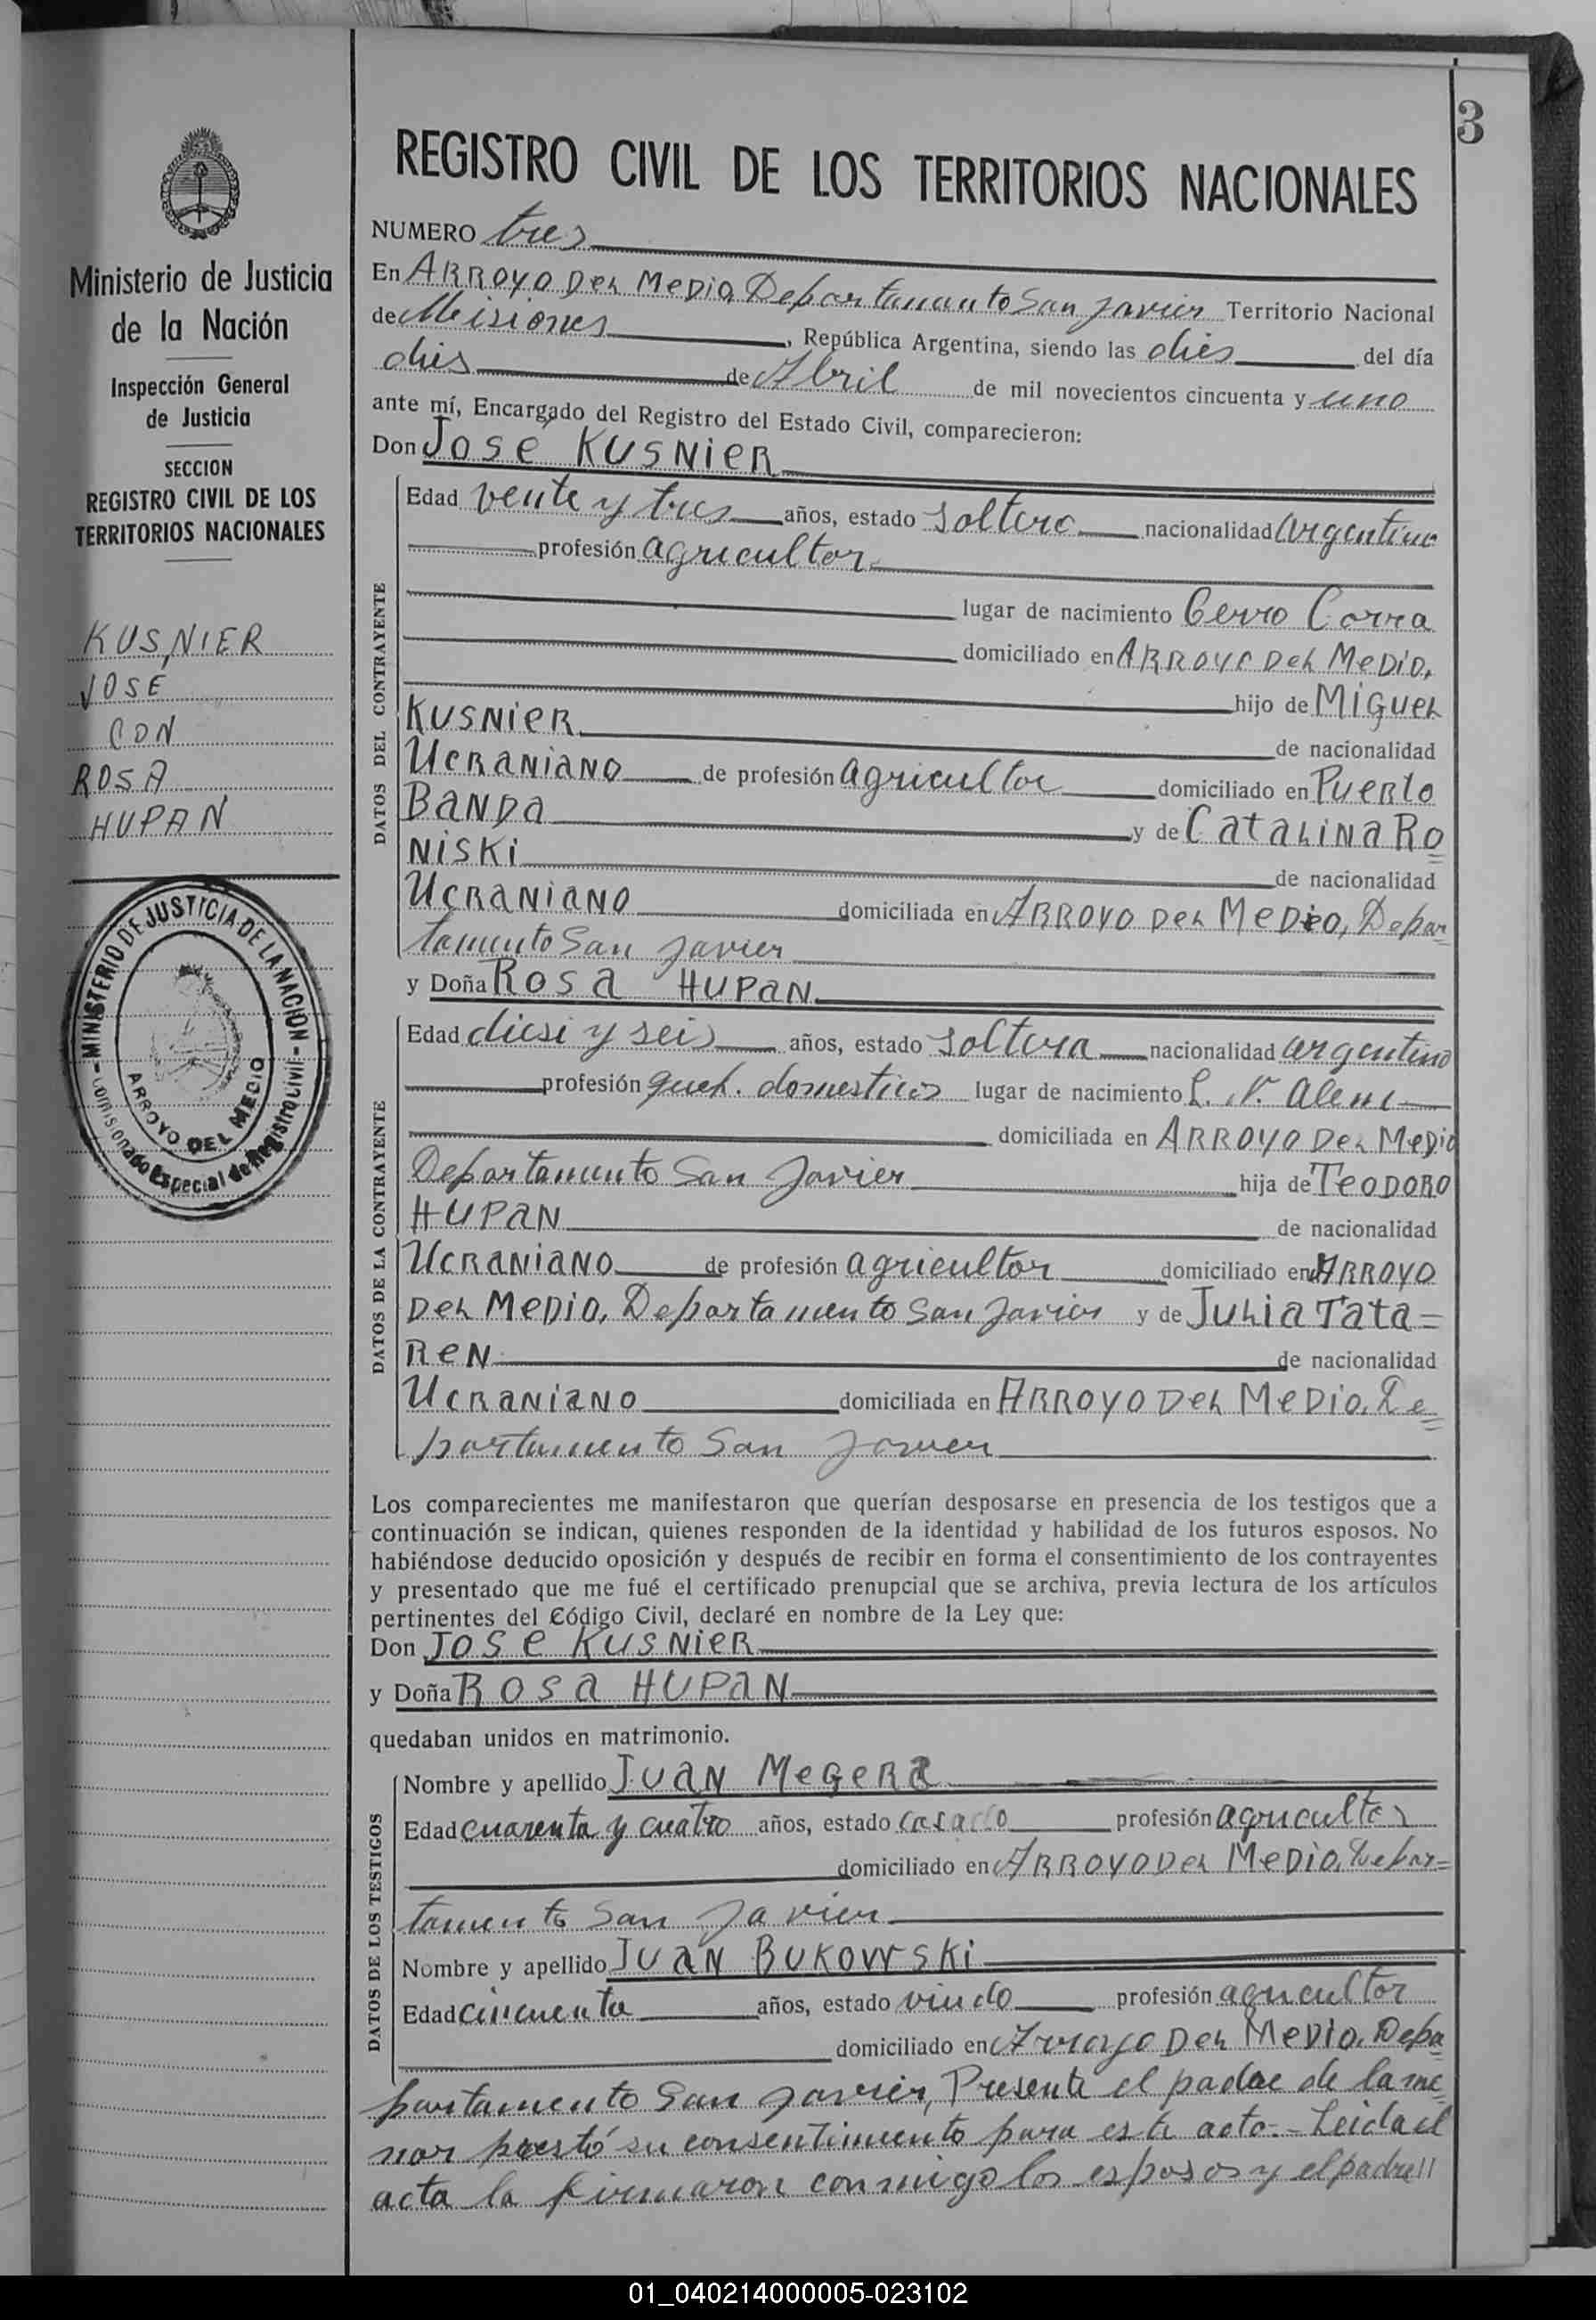 3
REGISTRO CIVIL DE LOS TERRITORIOS NACIONALES
Ministerio de Justicia
de la Nación
Inspección General
de Justicia
SECCION
REGISTRO CIVIL DE LOS
TERRITORIOS NACIONALES
KUSNIER
JOSE
CON
ROSA
HUPAN
MINISTERIO DE JUSTICIA DE LA NACION
Comisionado Especial de Registro Civil
ARROYO DEL MEDIO
NUMERO tres
En ARROYO DEL MEDIO, Departamento San Javier Territorio Nacional
de Misiones, República Argentina, siendo las dies del día
dies de Abril de mil novecientos cincuenta y uno
ante mí, Encargado del Registro del Estado Civil, comparecieron:
Don JOSÉ KUSNIER
DATOS DEL CONTRAYENTE
Edad vente y tres años, estado soltero nacionalidad argentino
profesión agricultor
lugar de nacimiento Cerro Corra
domiciliado en ARROYO DEL MEDIO,
hijo de MIGUEL
KUSNIER de nacionalidad
UCRANIANO de profesión agricultor domiciliado en PUERTO
BANDA y de CATALINA RO=
NISKI de nacionalidad
UCRANIANO domiciliada en ARROYO DEL MEDIO, Depar=
tamento San Javier
y Doña ROSA HUPAN
DATOS DE LA CONTRAYENTE
Edad diesi y seis años, estado soltera nacionalidad argentino
profesión queh. domesticos lugar de nacimiento L. N. Alem
domiciliada en ARROYO DEL MEDIO
Departamento San Javier hija de TEODORO
HUPAN de nacionalidad
UCRANIANO de profesión agricultor domiciliado en ARROYO
DEL MEDIO, Departamento San Javier y de JULIA TATA=
REN de nacionalidad
UCRANIANO domiciliada en ARROYO DEL MEDIO, De=
partamento San Javier
Los comparecientes me manifestaron que querían desposarse en presencia de los testigos que a
continuación se indican, quienes responden de la identidad y habilidad de los futuros esposos. No
habiéndose deducido oposición y después de recibir en forma el consentimiento de los contrayentes
y presentado que me fué el certificado prenupcial que se archiva, previa lectura de los artículos
pertinentes del Código Civil, declaré en nombre de la Ley que:
Don JOSE KUSNIER
y Doña ROSA HUPAN
quedaban unidos en matrimonio.
DATOS DE LOS TESTIGOS
Nombre y apellido JUAN MEGERA
Edad cuarenta y cuatro años, estado casado profesión agricultor
domiciliado en ARROYO DEL MEDIO, Depar=
tamento San Javier
Nombre y apellido JUAN BUKOWSKI
Edad cincuenta años, estado viudo profesión agricultor
domiciliado en Arroyo DEL MEDIO, Depa=
partamento San Javier, Presente el padre de la me=
nor prestó su consentimiento para este acto.- Leida el
acta la firmaron conmigo los esposos y el padre//
01_040214000005-023102